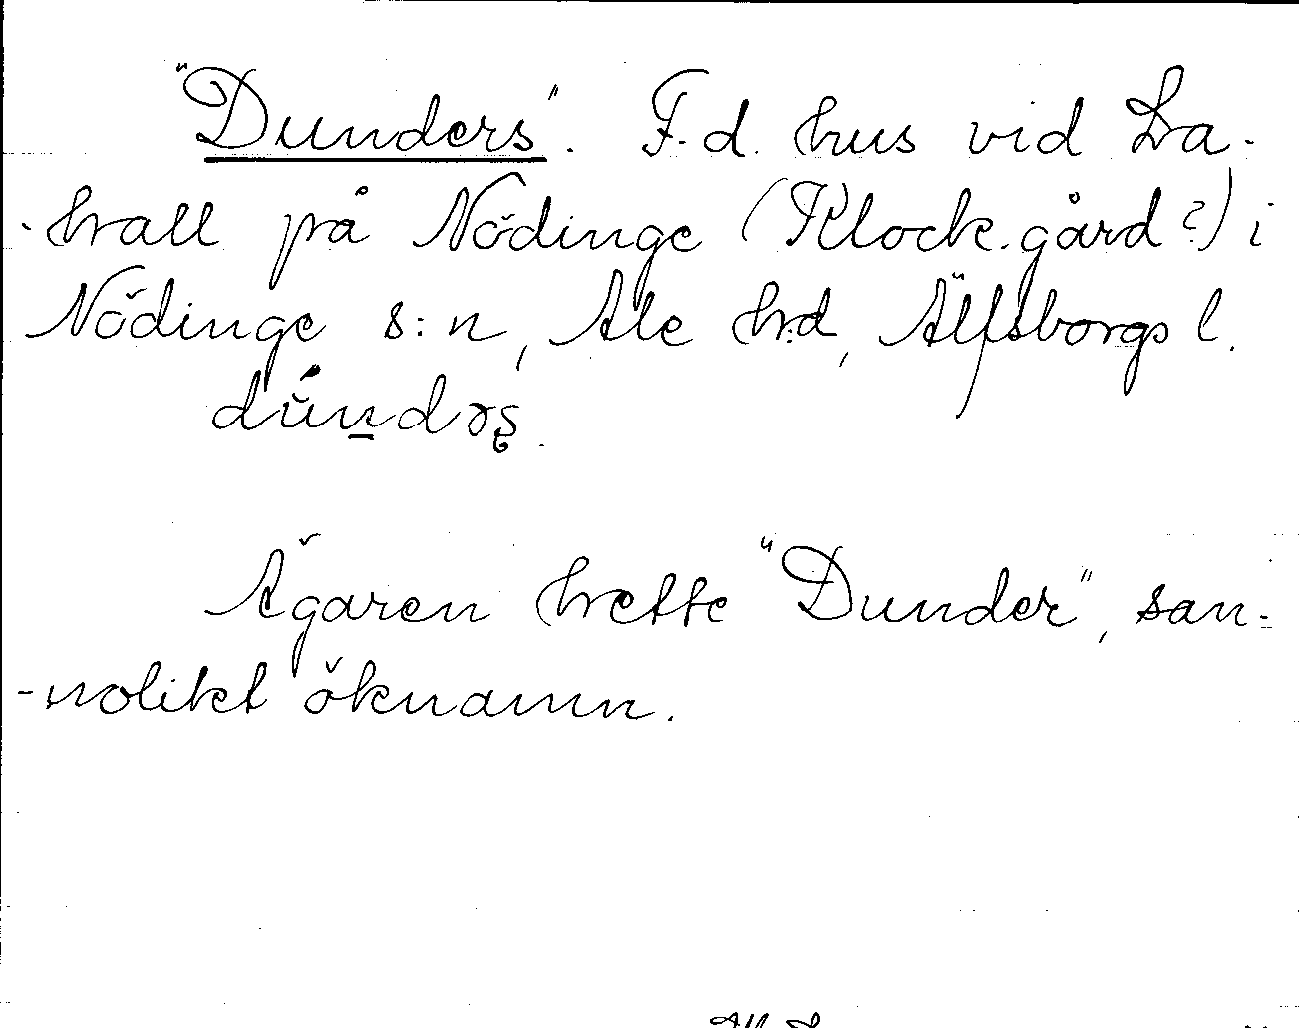 "Dunders". F. d. hus vid La-
-hall på Nödinge (Klock.gård?) i
Nödinge s:n, Ale hrd, Älfsborgs l.
dúndəʂ.
Ägaren hette "Dunder", san-
-nolikt öknamn.